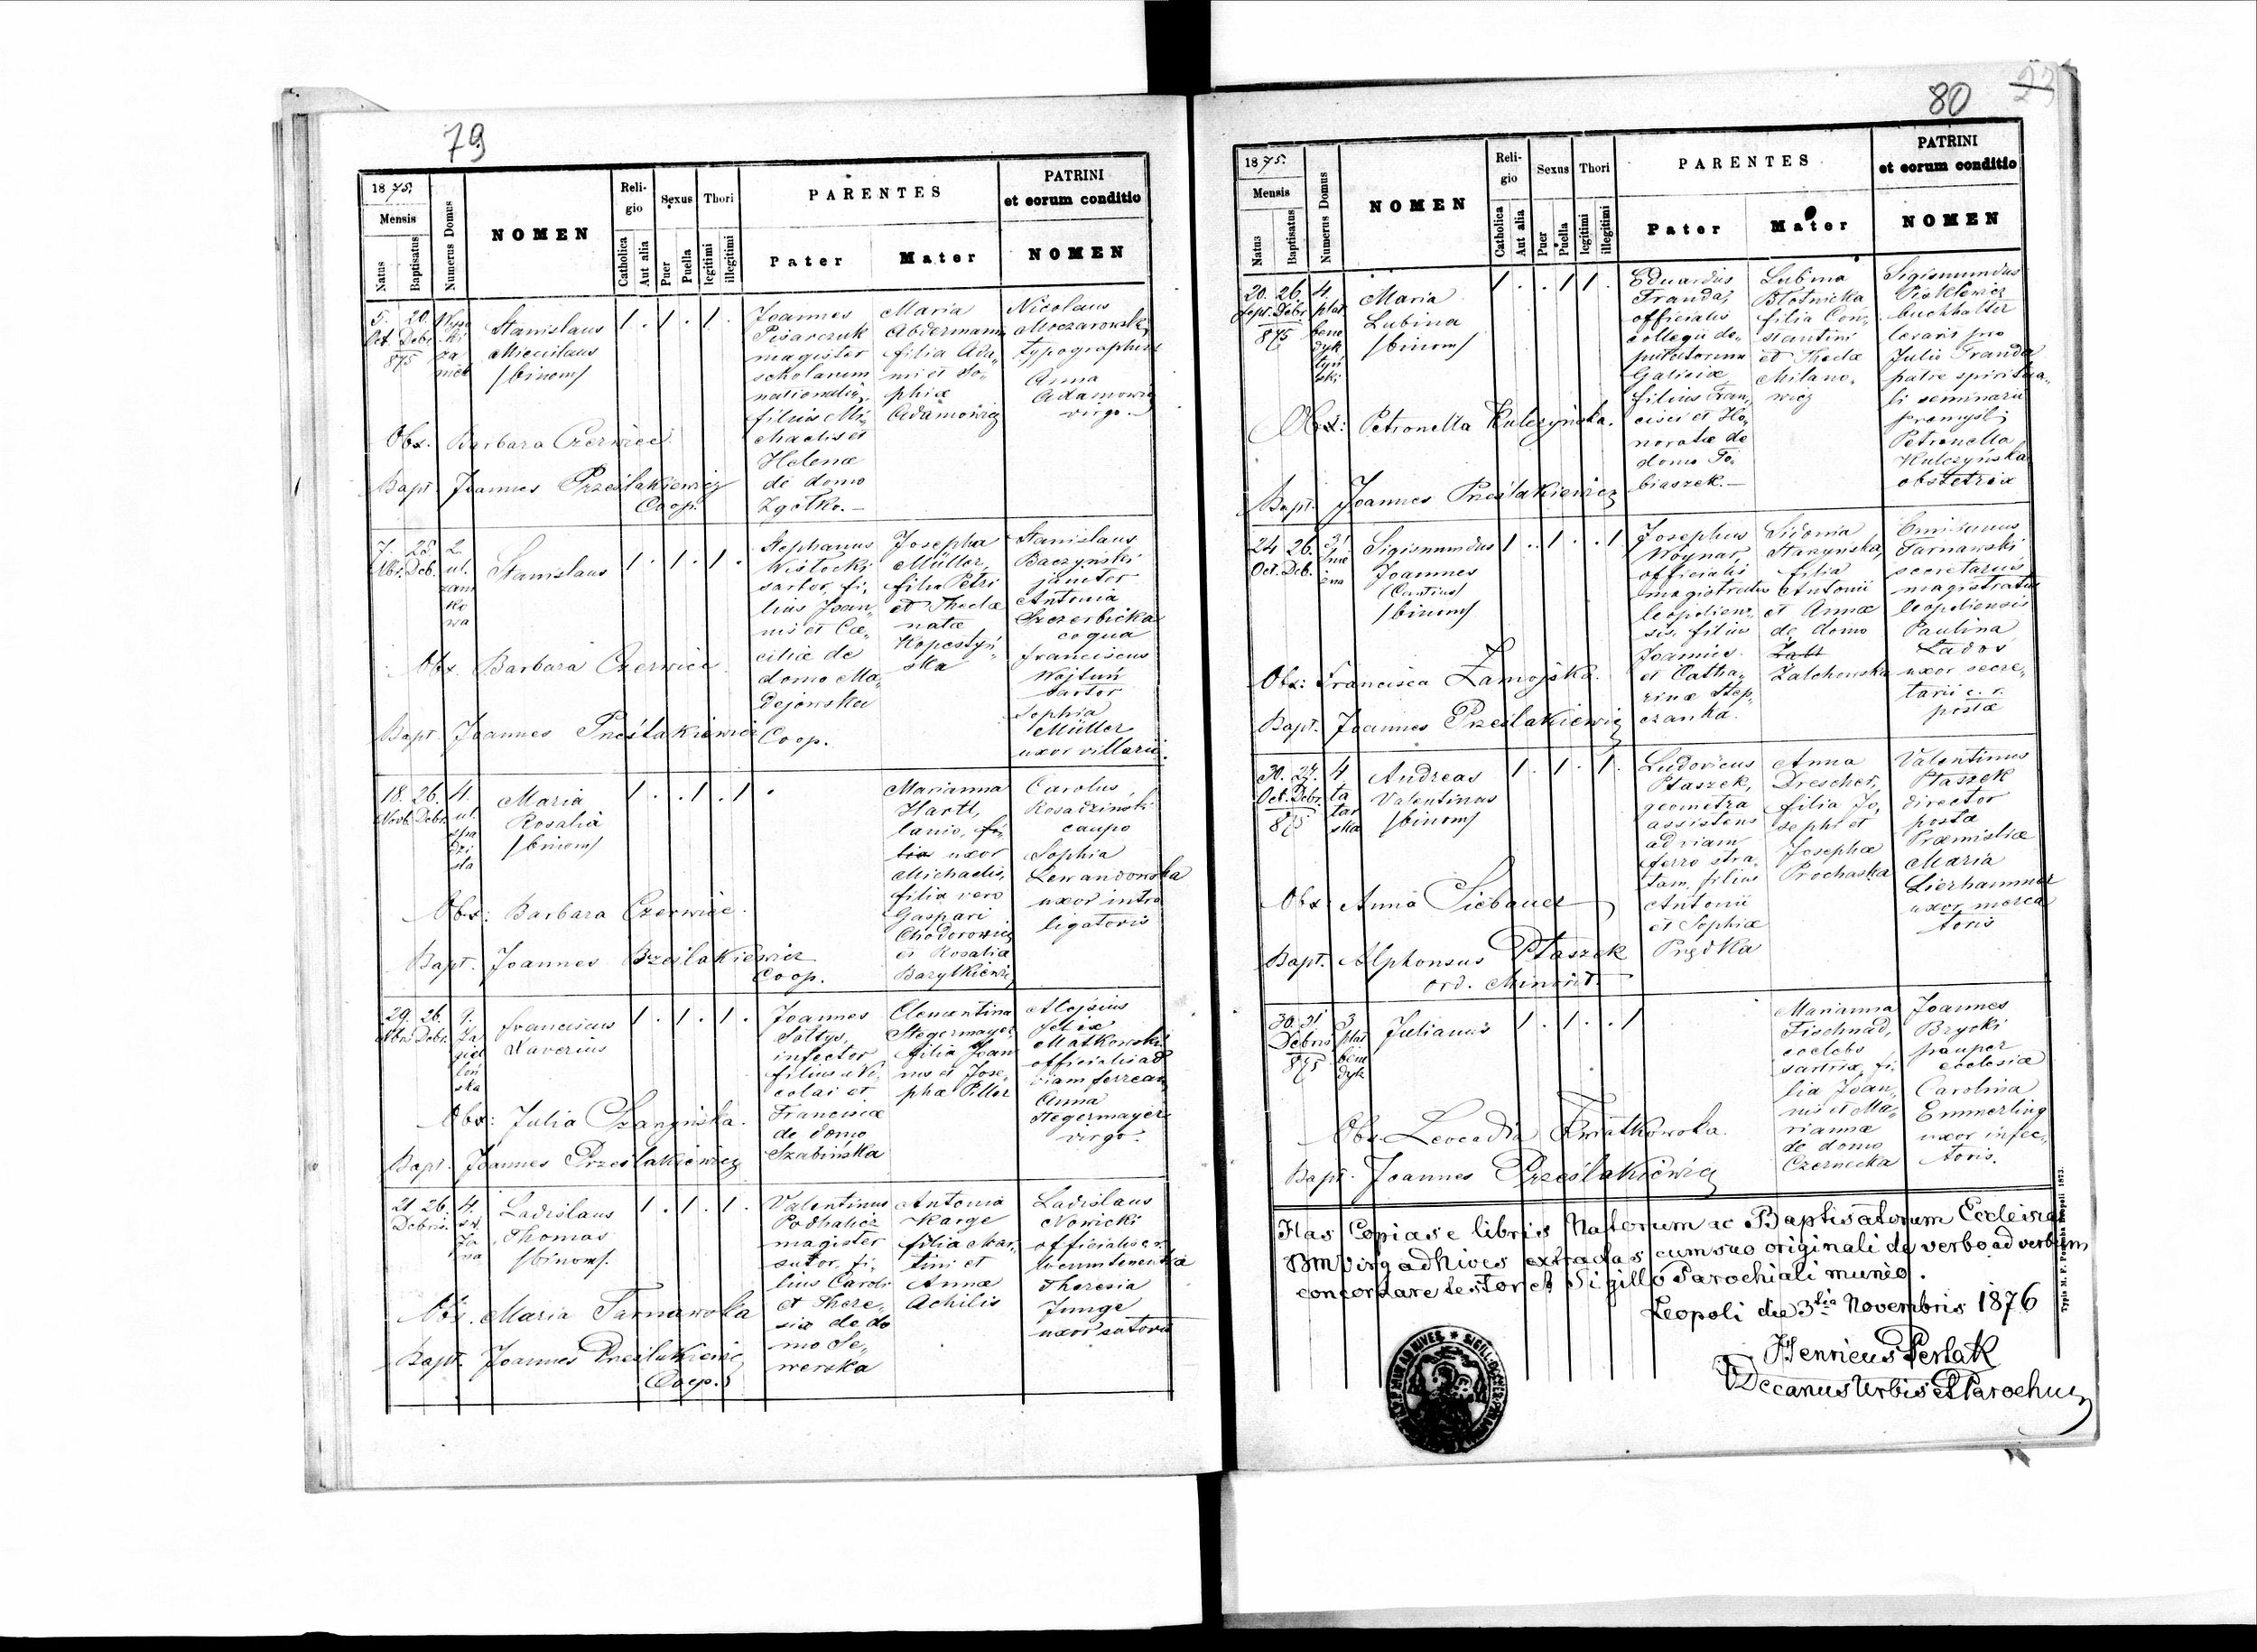 79
1875.
Mensis
Natus
Baptisatus
Numerus Domus
NOMEN
Reli-
gio
Catholica
Aut alia
Sexus
Puer
Puella
Thori
legitimi
illegitimi
PARENTES
Pater
Mater
PATRINI
et eorum conditio
NOMEN
5. 20.
Oct. Debr.
875
Stanislaus
Miecislaus
/binom/
1 . 1 . 1 .
Joannes
Pisarczuk
magister
scholarum
filius Mi-
chaelis et
Helenæ
de domo
Zgółko.—
Maria
filia Ada-
mi et So-
phiæ
Adamowicz
Nicolaus
Moczarowski
typographus
Anna
Adamowicz
virgo.—
Obx. Barbara Czerwiec
Bapt. Joannes Prześlakiewicz
Coop.
7. 25. 2.
ul.
zam
ko
wa
Stanislaus
1 . 1 . 1 .
Stephanus
Wisłocki
sartor, fi-
lius Joan-
nis et Cæ-
ciliæ de
domo Ma-
dejowska
Josepha
Müller,
filia Petri
et Theclæ
natæ
Kopestyń-
ska
Stanislaus
Baczyński
janitor
Antonia
Szczerbicka
coqua
Franciscus
Wojtuń
sartor
Sophia
Müller
uxor villarii.
Obx. Barbara Czerwiec
Bapt. Joannes Prześlakiewicz Coop.
18. 26. 4.
Novb. Debr. ul.
Maria
Rosalia
/binom/
1 . . 1 . 1 .
Marianna
Hartl,
lanio, fi-
lia uxor
Michaelis,
filia vero
Gaspari
Chodorowicz
et Rosaliæ
Barytkiewicz
Carolus
Rosadzinski
caupo
Sophia
Lewandowska
uxor intro
ligatoris
Obx: Barbara Czerwiec.
Bapt. Joannes Prześlakiewicz
Coop.
29. 26. 9.
Ja
giel
loń
ska
Franciscus
Xaverius
1 . 1 . 1 .
Joannes
Sołtys,
infector
filius Ni-
colai et
Franciscæ
de domo
Szabińska
Clementina
Stegermayer
filia Joan
nis et Jose-
phæ Piller
Aloysius
Felix
Matkowski
officialis ad
viam ferream
Anna
Stegermayer
virgo.
Obx: Julia
Bapt. Joannes Prześlakiewicz
21 26. 4.
Debris.
Ladislaus
Thomas
/binom/.
1 . 1 . 1 .
Valentinus
Podhalicz
magister
sutor, fi-
lius Caroli
et There-
siæ de do
mo Se-
werska
Antonia
Karge
filia Mar-
tini et
Annæ
Achilis
Ladislaus
Nowicki
officialis c. r.
locumtenentiæ
Theresia
Junge
uxor sutoris
Obx. Maria Tarnawska
Bapt. Joannes Prześlakiewicz
Coop.
80
23
1875.
Mensis
Natus
Baptisatus
Numerus Domus
NOMEN
Reli-
gio
Catholica
Aut alia
Sexus
Puer
Puella
Thori
legitimi
illegitimi
PARENTES
Pater
Mater
PATRINI
et eorum conditio
NOMEN
20. 26. 4.
Sept. Debr. plac
875 bene
dyk
tyń
ski
Maria
Lubina
/binom/
1 . . 1 1 .
Eduardus
Franda,
officialis
collegii de-
putatorum
Galiciæ
filius Fran-
cisci et Ho-
noratæ de
domo To-
biaszek.—
Lubina
Błotnicka
filia Con-
stantini
et Theclæ
Milano-
wicz
Sigismundus
buchhalter
Julio Franda
patre spiritua-
li seminarii
Premysl;
Petronella
Kulczyńska
obstetrix
Obx: Petronella Kulczyńska.
Bapt. Joannes Prześlakiewicz
24 26. 31
Oct. Deb.
Sigismundus
Joannes
(Cantius)
/binom/
1 . . 1 . . 1
Josephus
Woynar,
officialis
magistratus
leopolien-
sis, filius
Joannis
et Catha-
rinæ Step-
czanka.
Sidonia
Starzyńska,
filia
Antonii
et Annæ
de domo
Zalchowska
Emilianus
Tarnawski
secretarius
magistratus
leopoliensis
Paulina
Lados
uxor secre-
tarii c. r.
postæ
Obx: Francisca Zamojska.
Bapt. Joannes Prześlakiewicz
30. 27. 4
Oct. Debr. ta
875 tar
ska
Andreas
Valentinus
/binom/
1 . 1 . 1 .
Ludovicus
Ptaszek,
geometra
assistens
ad viam
ferro stra-
tam, filius
Antonii
et Sophiæ
Prędka
Anna
Drescher,
filia Jo-
sephi et
Josephæ
Prochaska
Valentinus
Ptaszek
director
postæ
Præmisliæ
Maria
Lierhammer
uxor merca
toris
Obx. Anna Siebauer
Bapt. Alphonsus Ptaszek
ord. Minorit.
30. 31 3
Debris plac
875 bene
dyk
Julianus
1 . 1 . . 1
Marianna
Fischnad,
coelebs
sartrix, fi-
lia Joan-
nis et Ma-
riannæ
de domo
Czernecka
Joannes
Brycki
pauper
ecclesiæ
Carolina
Emmerling
uxor infec-
toris.
Obx. Leocadia Kwiatkowska.
Bapt. Joannes Prześlakiewicz
Has Copias e libris Natorum ac Baptisatorum Ecclesiae
BM Virg ad Nives extradas cum suo originali de verbo ad verbum
concordare testor et Sigillo Parochiali munio.
Leopoli die 3tia Novembris 1876
Henricus Perlak
VDecanus Urbis et Parochus